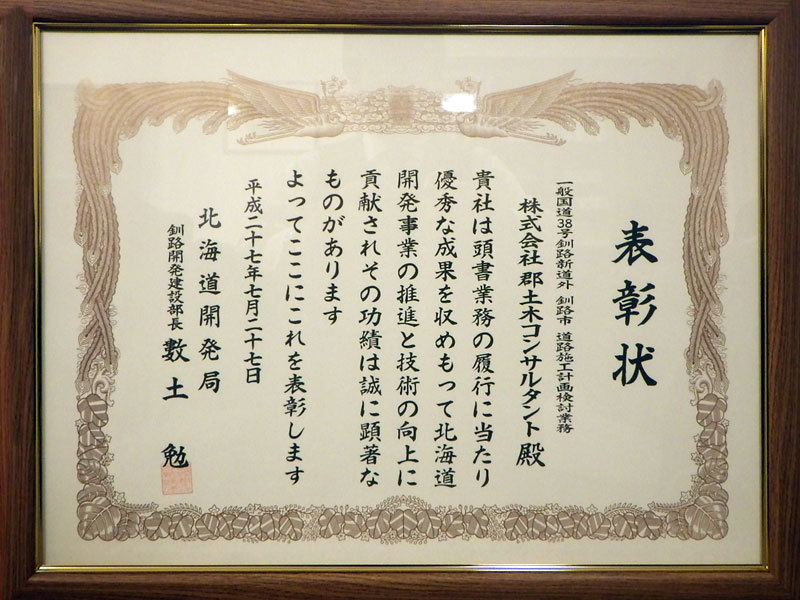 表彰状
一般国道38号釧路新道外 釧路市 道路施工計画検討業務
株式会社 郡土木コンサルタント 殿
貴社は頭書業務の履行に当たり
優秀な成果を収めもって北海道
開発事業の推進と技術の向上に
貢献されその功績は誠に顕著な
ものがあります
よってここにこれを表彰します
平成二十七年七月二十七日
北海道開発局
釧路開発建設部長 数土 勉